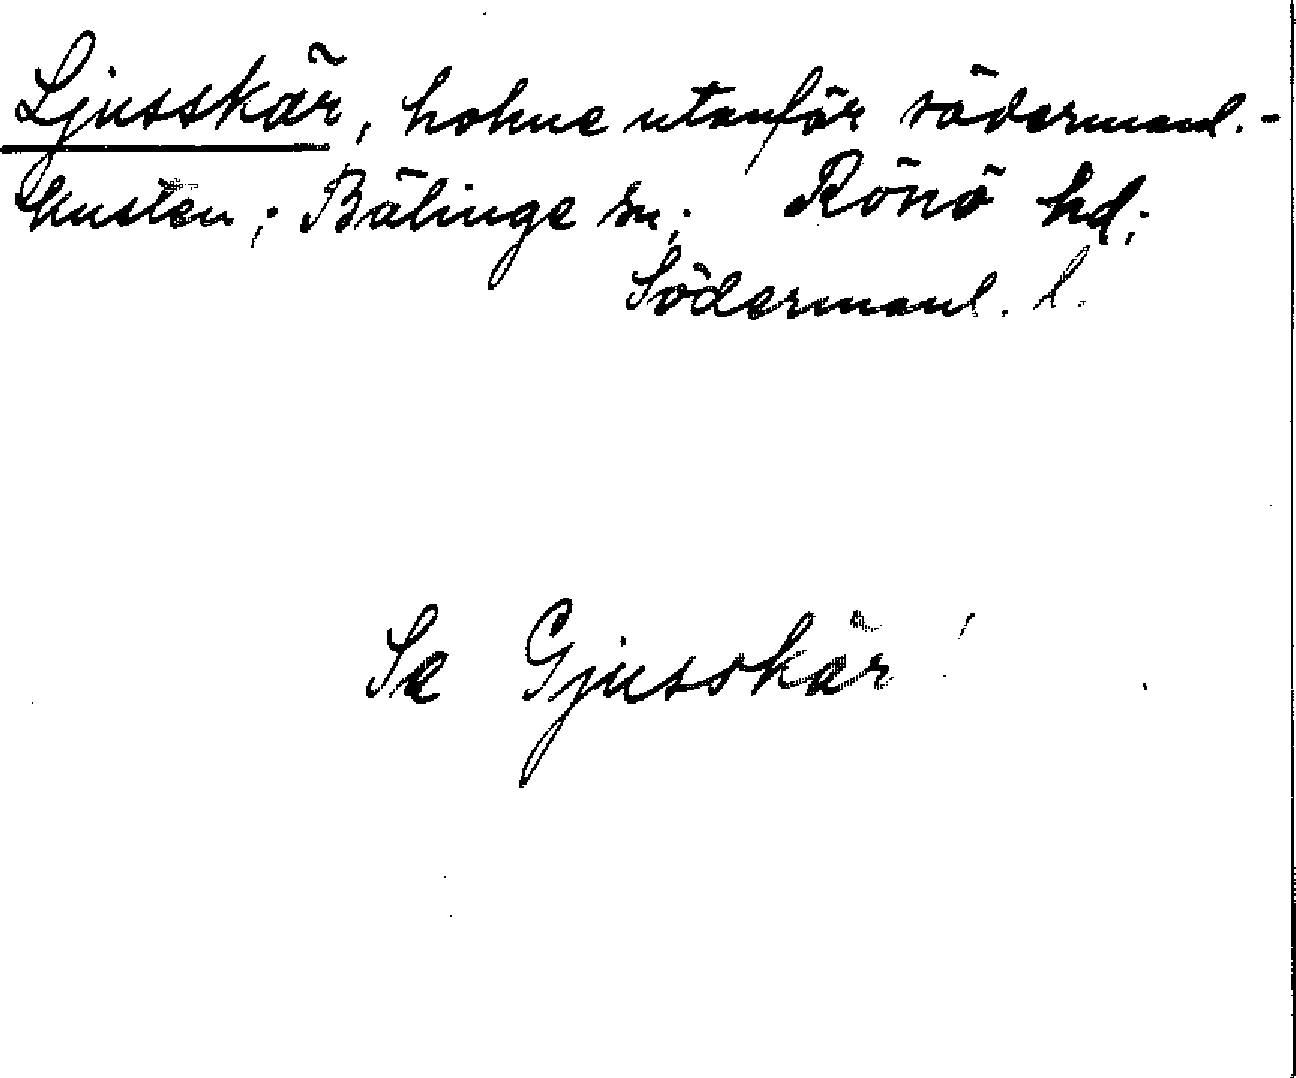 Ljusskär, holme utanför södermanl.-
kusten; Bälinge sn; Rönö hd;
Södermanl. l.
Se Gjusskär!